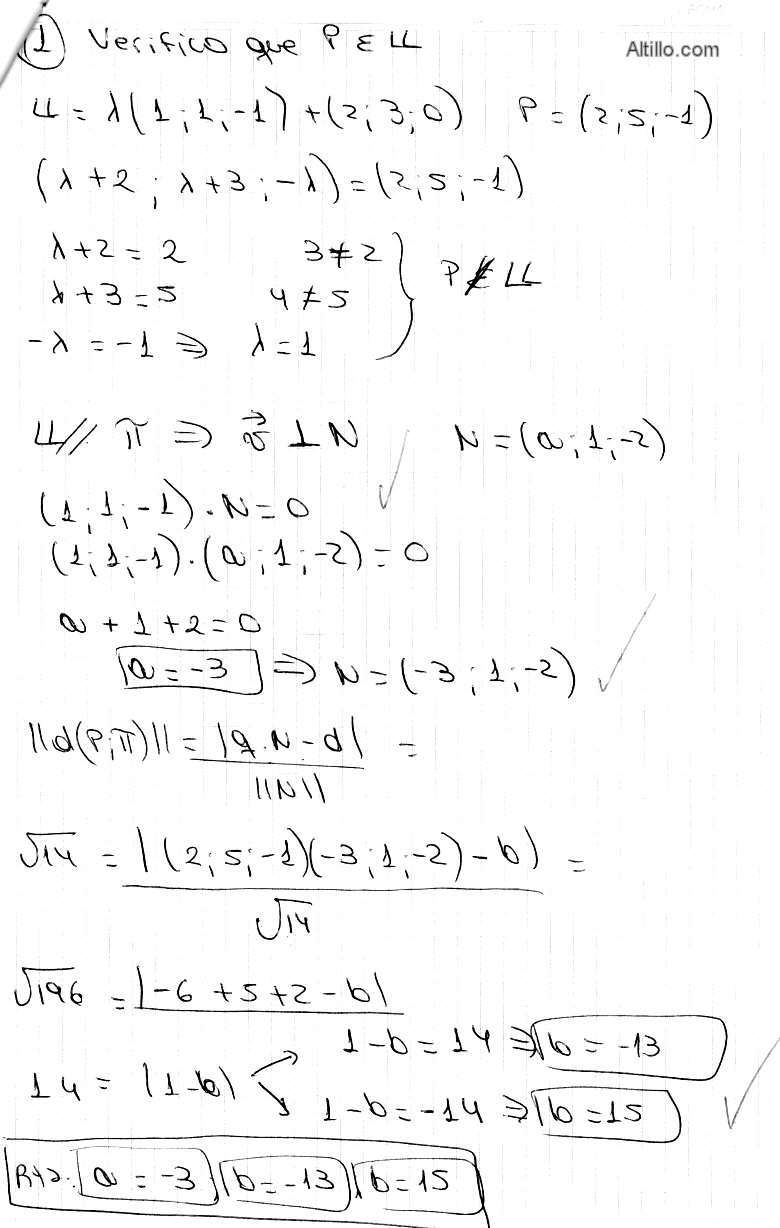 ① Verifico que P ∈ 𝕃
Altillo.com
𝕃 = λ(1;1;-1) + (2;3;0) P = (2;5;-1)
(λ+2; λ+3; -λ) = (2;5;-1)
λ+2 = 2 3≠2
λ+3 = 5 4≠5
-λ = -1 ⇒ λ = 1
P ∉ 𝕃
𝕃 // π ⇒ v⃗ ⊥ N N = (a;1;-2)
(1;1;-1) . N = 0
(1;1;-1) . (a;1;-2) = 0
a + 1 + 2 = 0
a = -3 ⇒ N = (-3;1;-2)
||d(P;π)|| = |q.N - d| / ||N|| =
√14 = |(2;5;-1)(-3;1;-2) - b| / √14 =
√196 = |-6 + 5 + 2 - b|
1 - b = 14 ⇒ b = -13
14 = |1-b|
1 - b = -14 ⇒ b = 15
Rta: a = -3 b = -13 b = 15